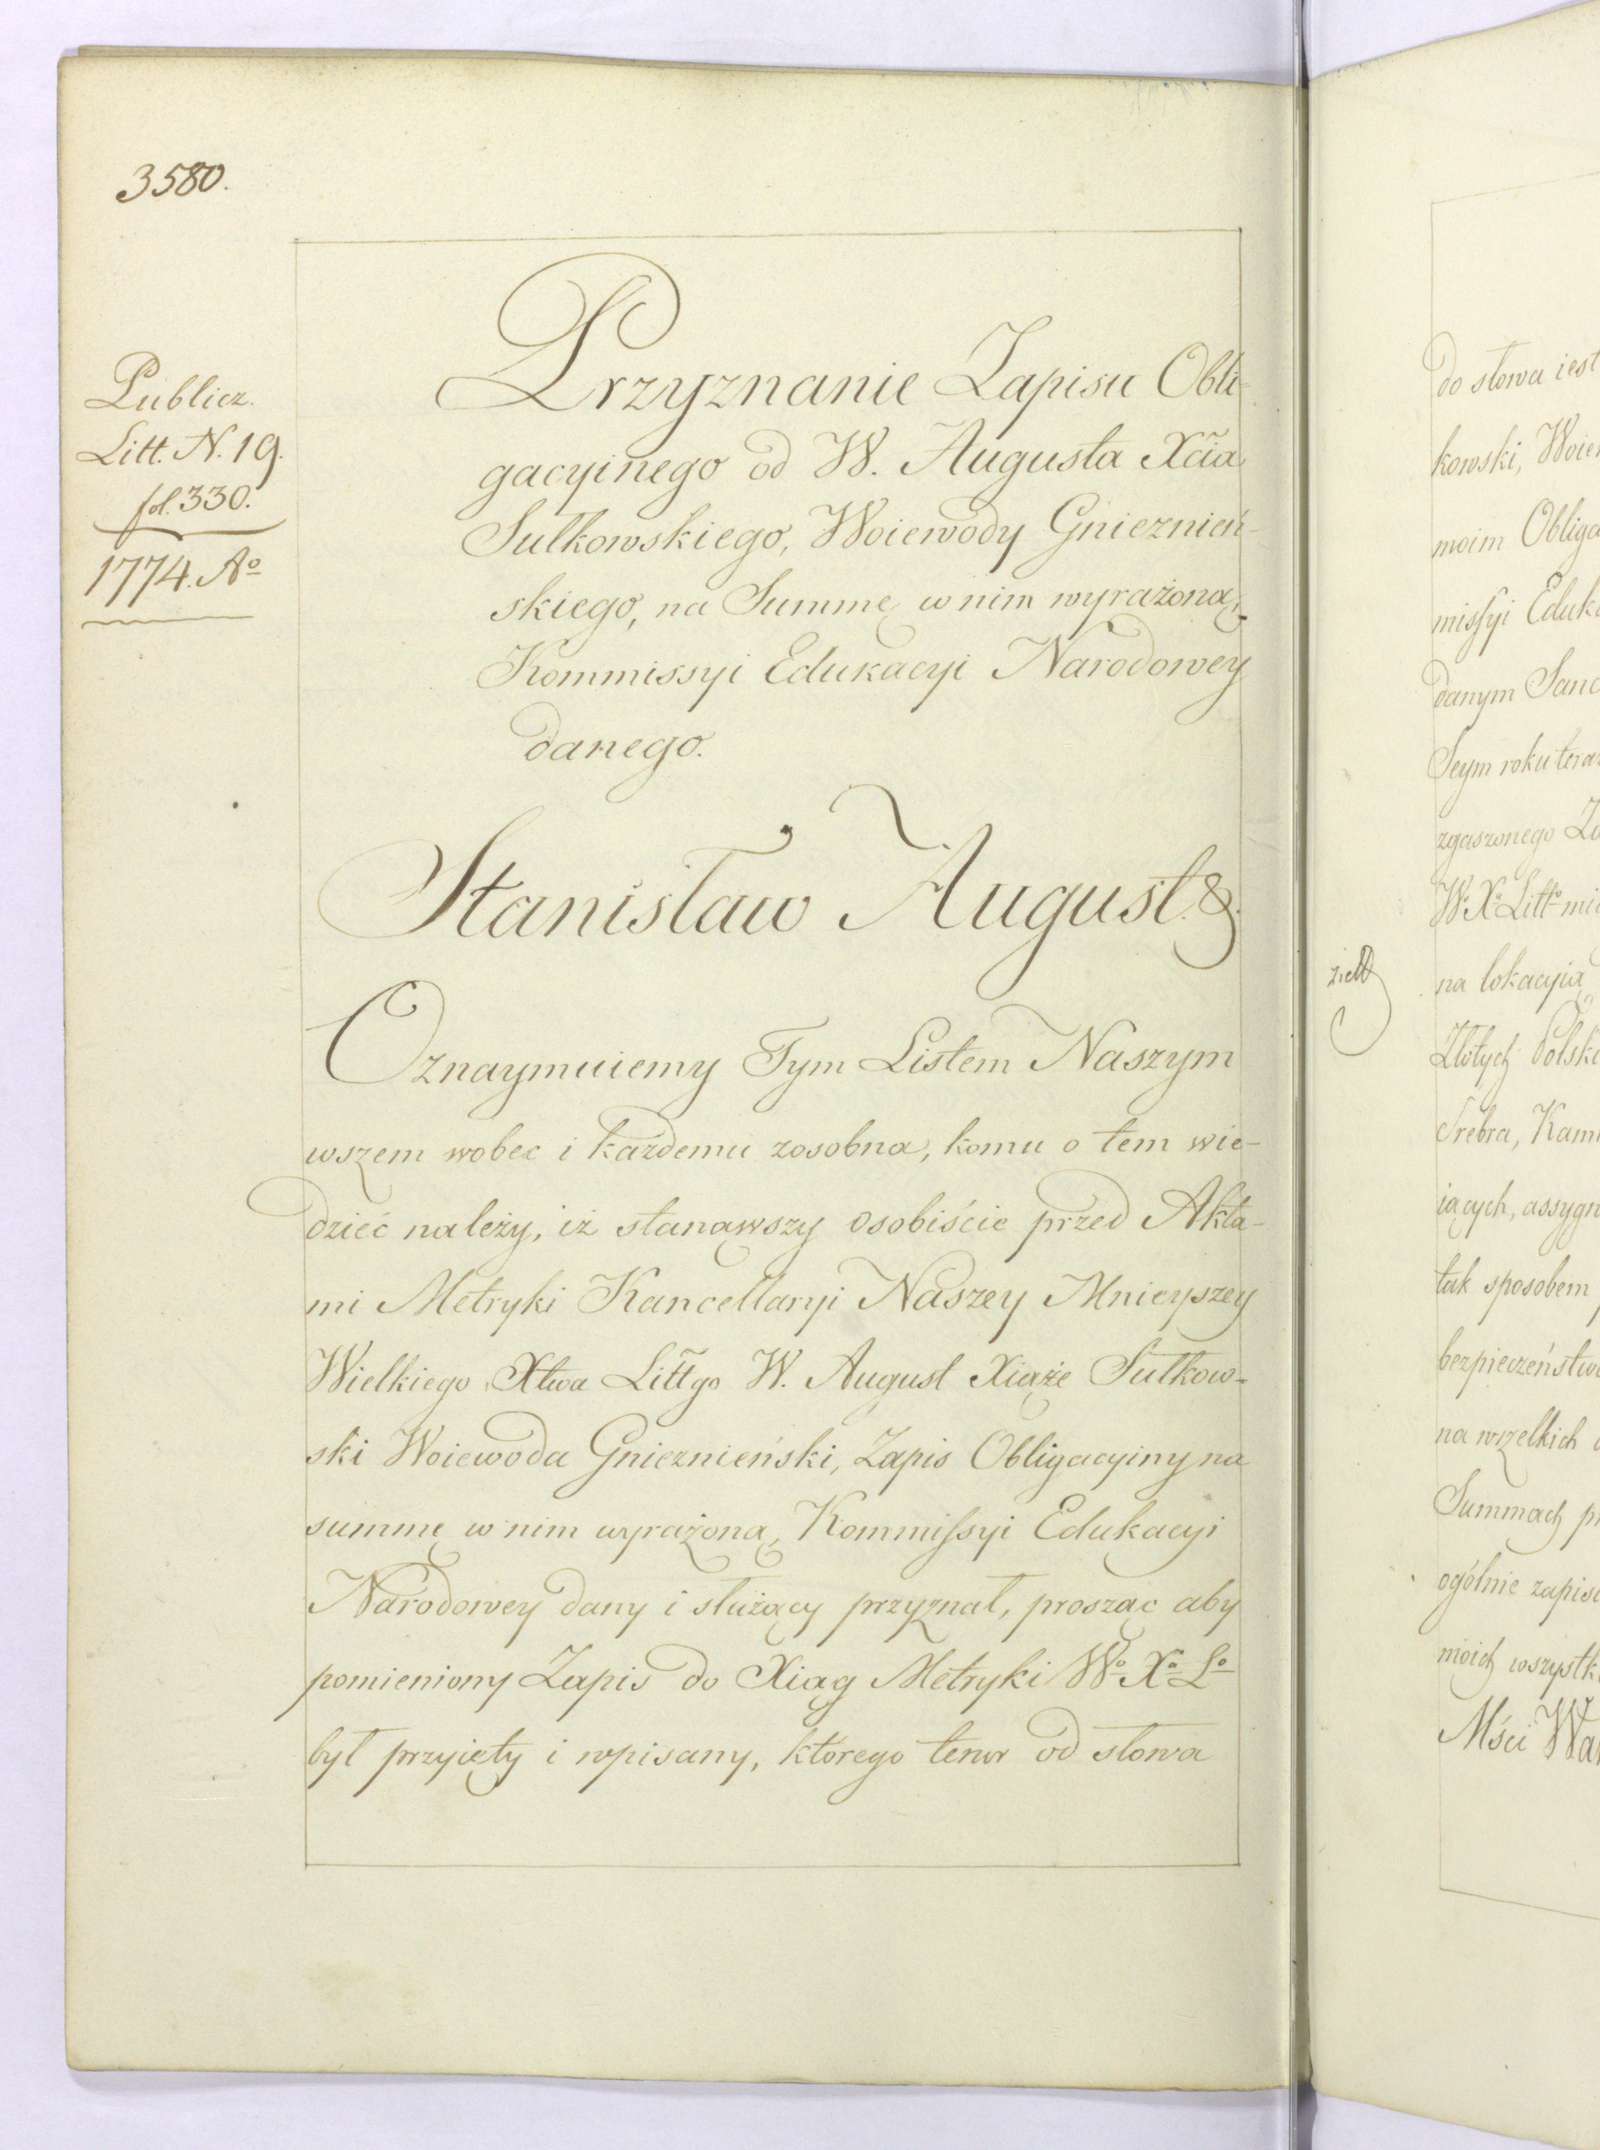 3580.
Publicz.
Litt. N. 19.
fol. 330.
1774. Aº
Przyznanie Zapisu Obli-
gacyinego od W. Augusta Xcia
Sułkowskiego, Woiewody Gnieznień-
skiego, na Summę w nim wyrażoną,
Kommissyi Edukacyi Narodowey
danego.
Stanisław August &.
Oznaymuiemy Tym Listem Naszym
wszem wobec i każdemu zosobna, komu o tem wie-
dzieć należy, iż stanąwszy osobiście przed Akta-
mi Metryki Kancellaryi Naszey Mnieyszey
Wielkiego Xtwa Littgo W. August Xiąże Sułkow-
ski Woiewoda Gnieznieński, Zapis Obligacyiny na
summę w nim wyrażoną, Kommiſsyi Edukacyi
Narodowey dany i służący przyznał, prosząc aby
pomieniony Zapis do Xiąg Metryki Wº Xº Lº
był przyięty i wpisany, którego tenor od słowa
do słowa iest
kowski,
moim
miſsyi
danym
Seym roku
zgaszonego
Wº Xº Littº
na lokacyią
Złotych
Srebra,
iących,
tak sposobem
na wszelkich
Summach
ogólnie
moich
Mści